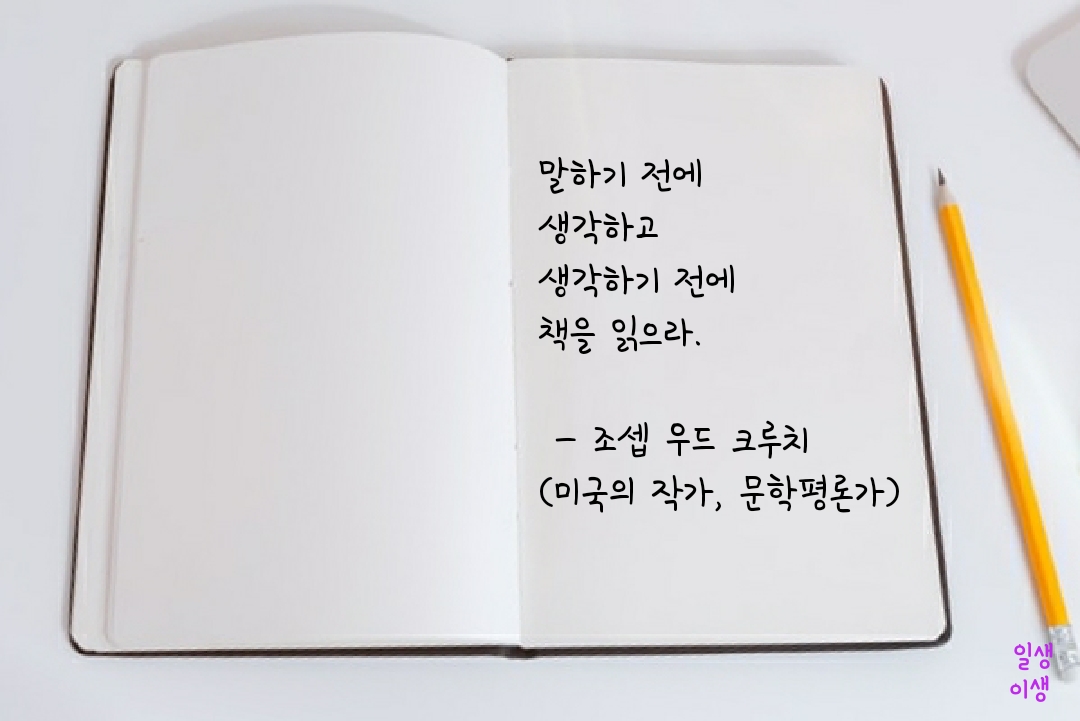 말하기 전에
생각하고
생각하기 전에
책을 읽으라.
- 조셉 우드 크루치
(미국의 작가, 문학평론가)
일생
이생